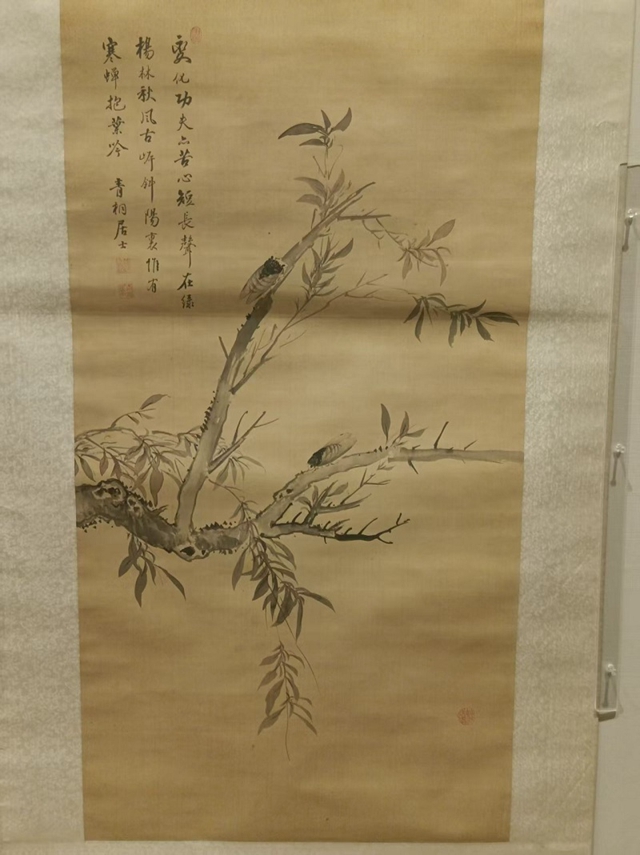 變化功夫亦苦心短長聲在綠
楊林秋風古岸斜陽裏惟有
寒蟬抱葉吟 青桐居士